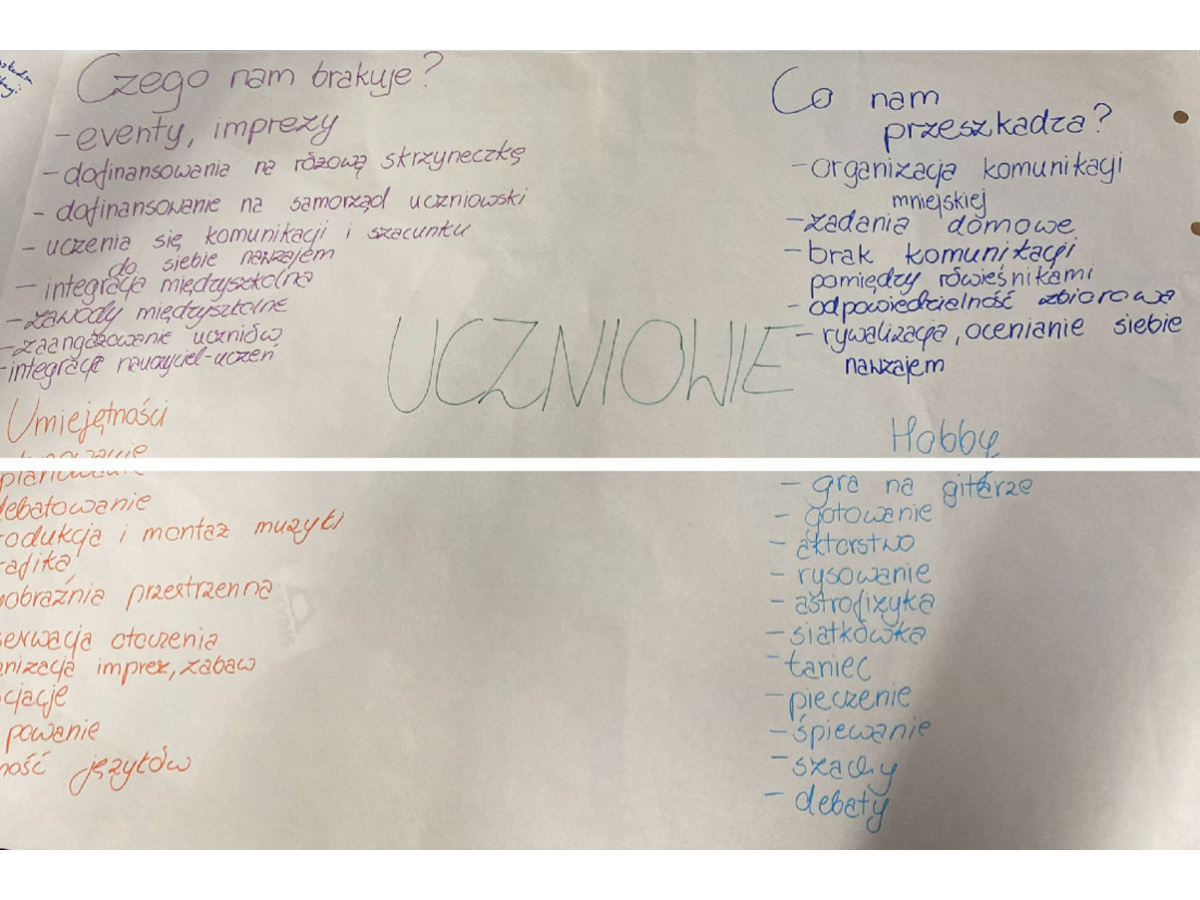 Czego nam brakuje?
- eventy, imprezy
- dofinansowania na różową skrzyneczkę
- dofinansowanie na samorząd uczniowski
- uczenia się komunikacji i szacunku
do siebie nawzajem
- integracja międzyszkolna
- zawody międzyszkolne
- zaangażowanie uczniów
- integracje nauczyciel-uczeń
Co nam
przeszkadza?
- organizacja komunikacji
mniejskiej
- zadania domowe
- brak komunikacji
pomiędzy rówieśnikami
- odpowiedzielność zbiorowa
- rywalizacja, ocenianie siebie
nawzajem
UCZNIOWIE
Umiejętności
planowanie
debatowanie
odukcja i montaż muzyki
rafika
obraźnia przestrzenna
serwacja otoczenia
nizacja imprez, zabaw
cjacje
powanie
ność języków
Hobby
- gra na gitarze
- gotowanie
- aktorstwo
- rysowanie
- astrofizyka
- siatkówka
- taniec
- pieczenie
- śpiewanie
- szachy
- debaty